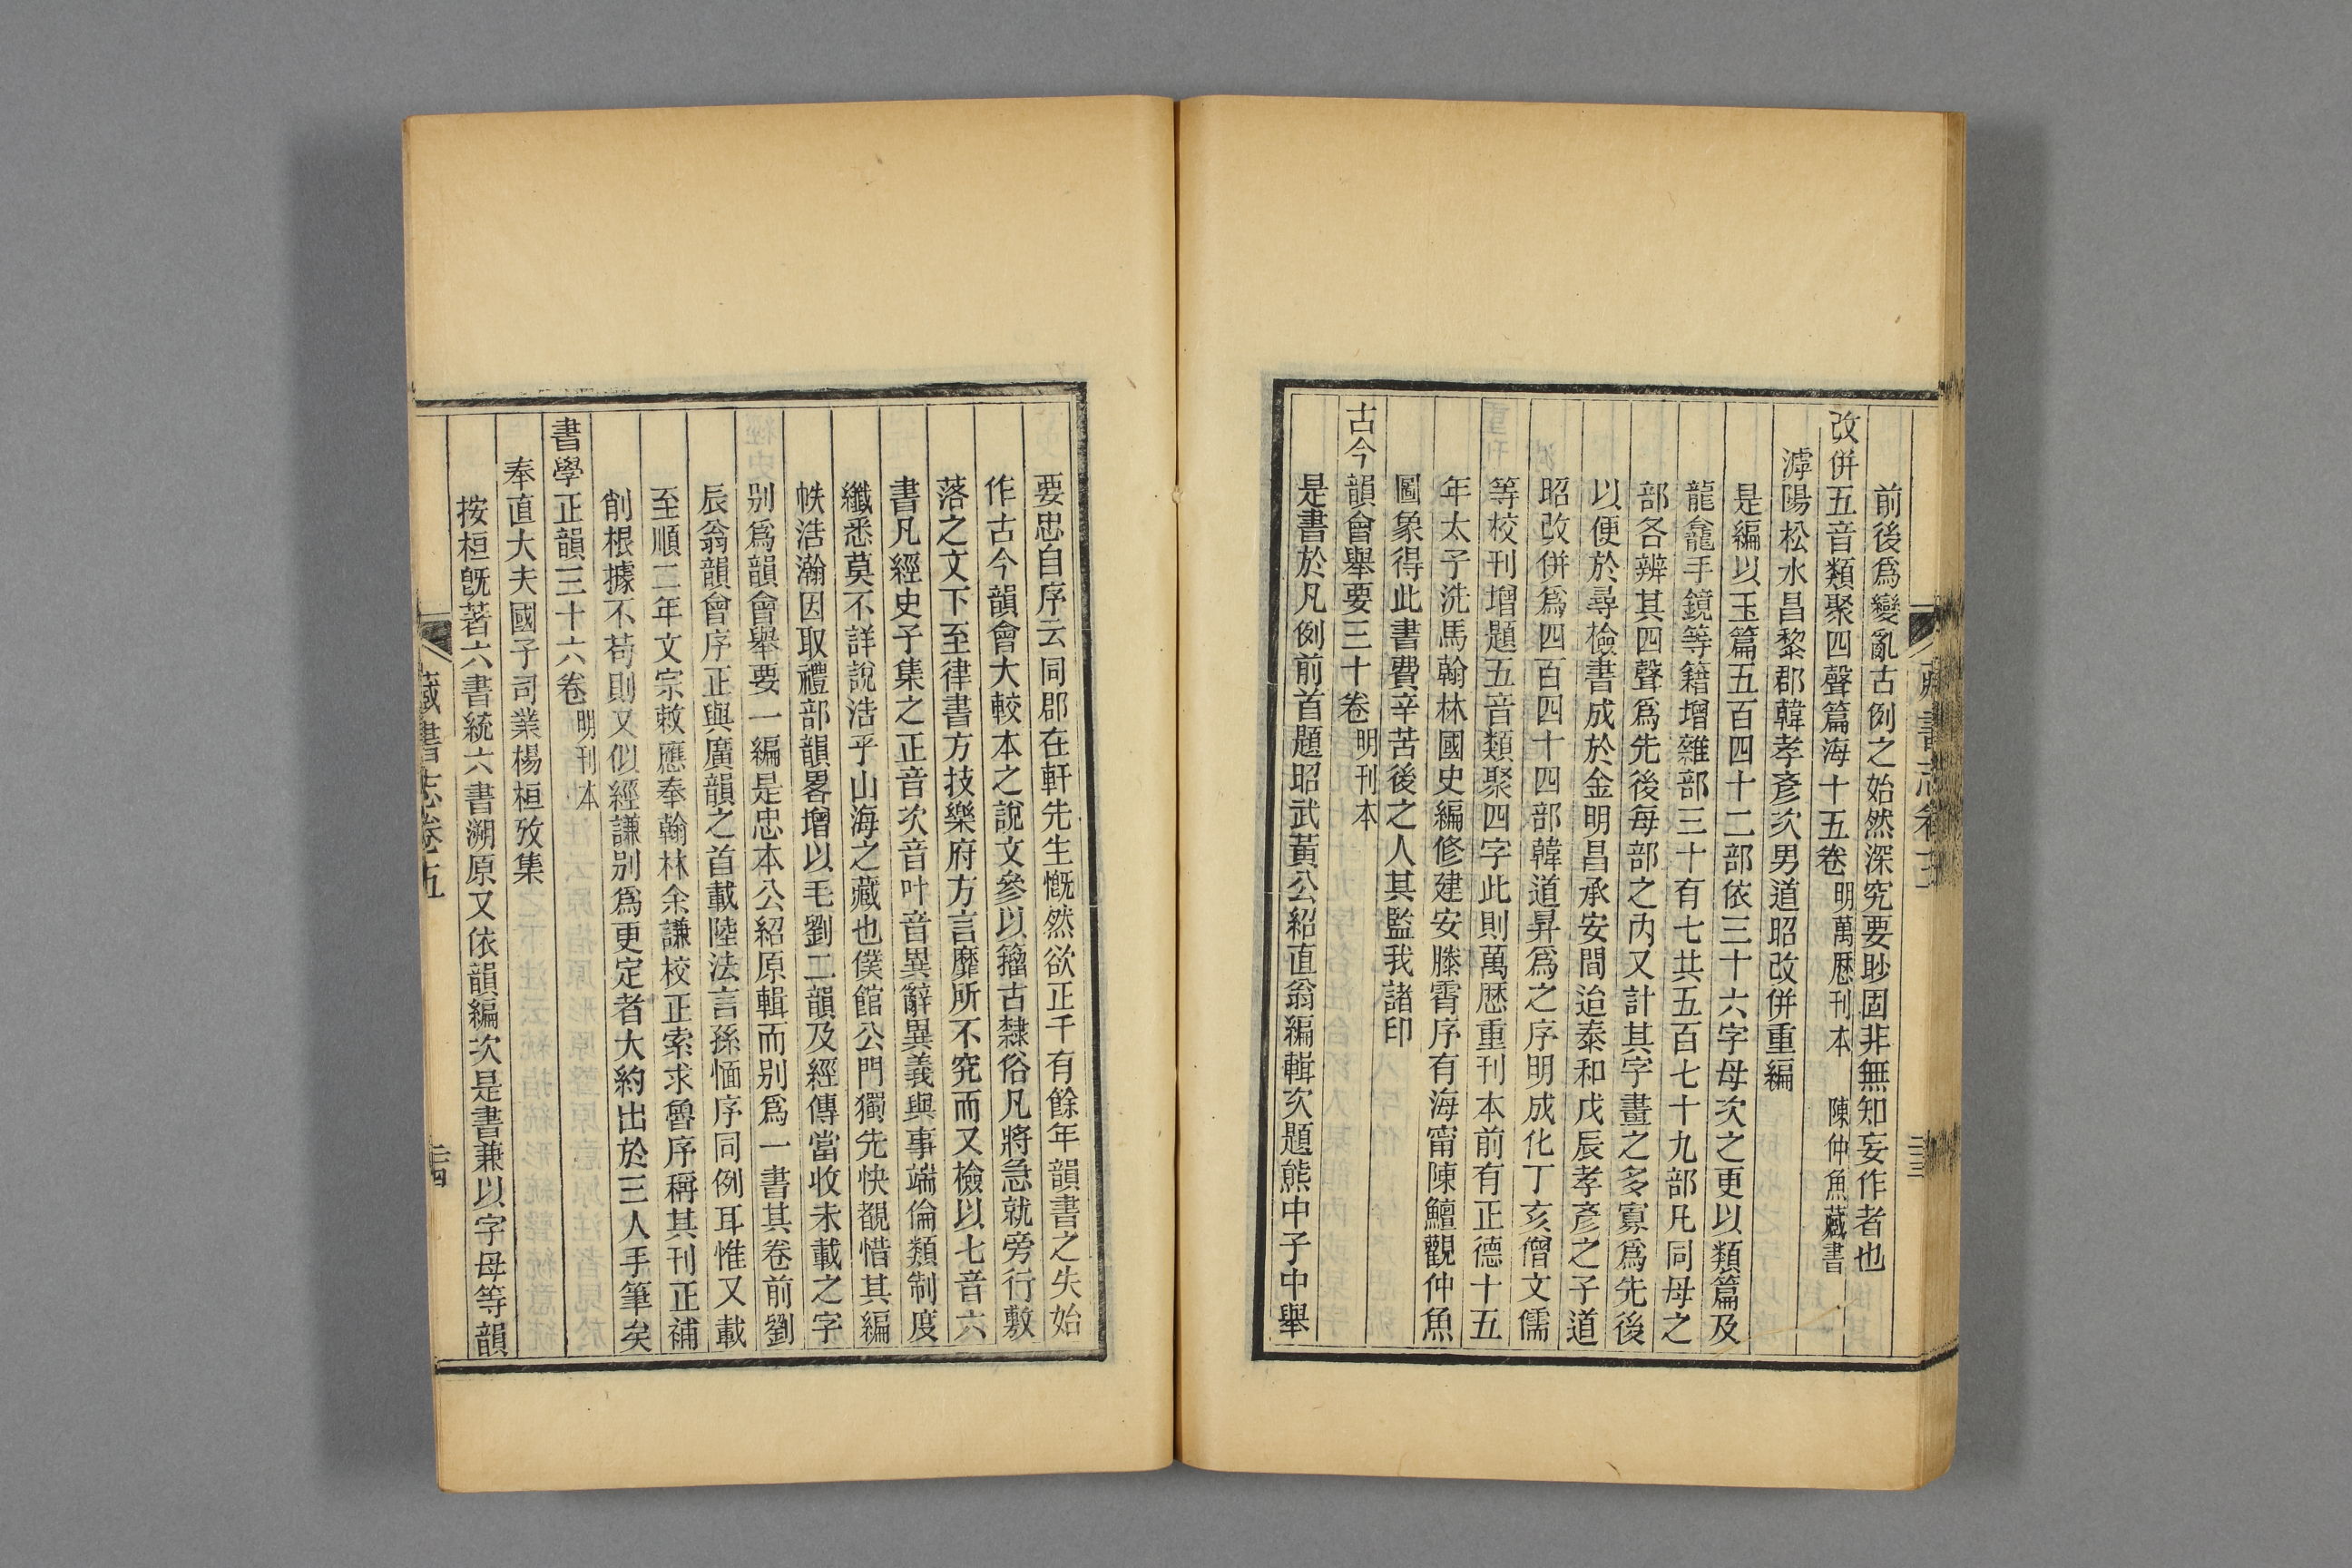 前後爲變亂古例之始然深究要眇固非無知妄作者也
改併五音類聚四聲篇海十五卷 明萬厯刊本 陳仲魚藏書
滹陽松水昌黎郡韓孝彥次男道昭改併重編
是編以玉篇五百四十二部依三十六字母次之更以類篇及
龍龕手鏡等籍增雜部三十有七共五百七十九部凡同母之
部各辨其四聲爲先後每部之內又計其字畫之多寡爲先後
以便於尋檢書成於金明昌承安間迨泰和戊辰孝彥之子道
昭改併爲四百四十四部韓道昇爲之序明成化丁亥僧文儒
等校刊增題五音類聚四字此則萬厯重刊本前有正德十五
年太子洗馬翰林國史編修建安滕霄序有海甯陳鱣觀仲魚
圖象得此書費辛苦後之人其監我諸印
古今韻會舉要三十卷 明刊本
是書於凡例前首題昭武黃公紹直翁編輯次題熊中子中舉
要忠自序云同郡在軒先生慨然欲正千有餘年韻書之失始
作古今韻會大較本之說文參以籀古隸俗凡將急就旁行敷
落之文下至律書方技樂府方言靡所不究而又檢以七音六
書凡經史子集之正音次音叶音異辭異義與事端倫類制度
纖悉莫不詳說浩乎山海之藏也僕館公門獨先快覩惜其編
帙浩瀚因取禮部韻畧增以毛劉二韻及經傳當收未載之字
别爲韻會舉要一編是忠本公紹原輯而别爲一書其卷前劉
辰翁韻會序正與廣韻之首載陸法言孫愐序同例耳惟又載
至順二年文宗敕應奉翰林余謙校正索求魯序稱其刊正補
削根據不苟則又似經謙别爲更定者大約出於三人手筆矣
書學正韻三十六卷 明刊本
奉直大夫國子司業楊桓攷集
按桓旣著六書統六書溯原又依韻編次是書兼以字母等韻
藏書志卷五
三十四